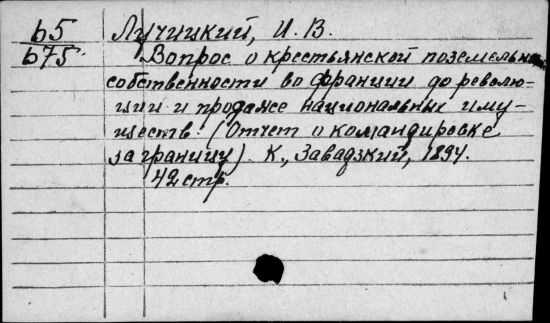 65 Лучицкий, И. В.
675. Вопрос о крестьянской поземельн
собственности во франции до револю=
ции и продаже национальных иму-
ществ. (Отчет о командировке
за границу). К., Завадзкий, 1894.
42 стр.